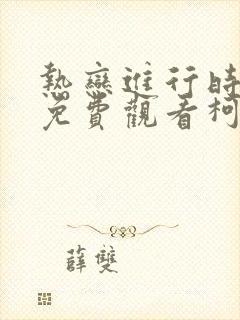 熱戀進行時
免費觀看柯
薛雙